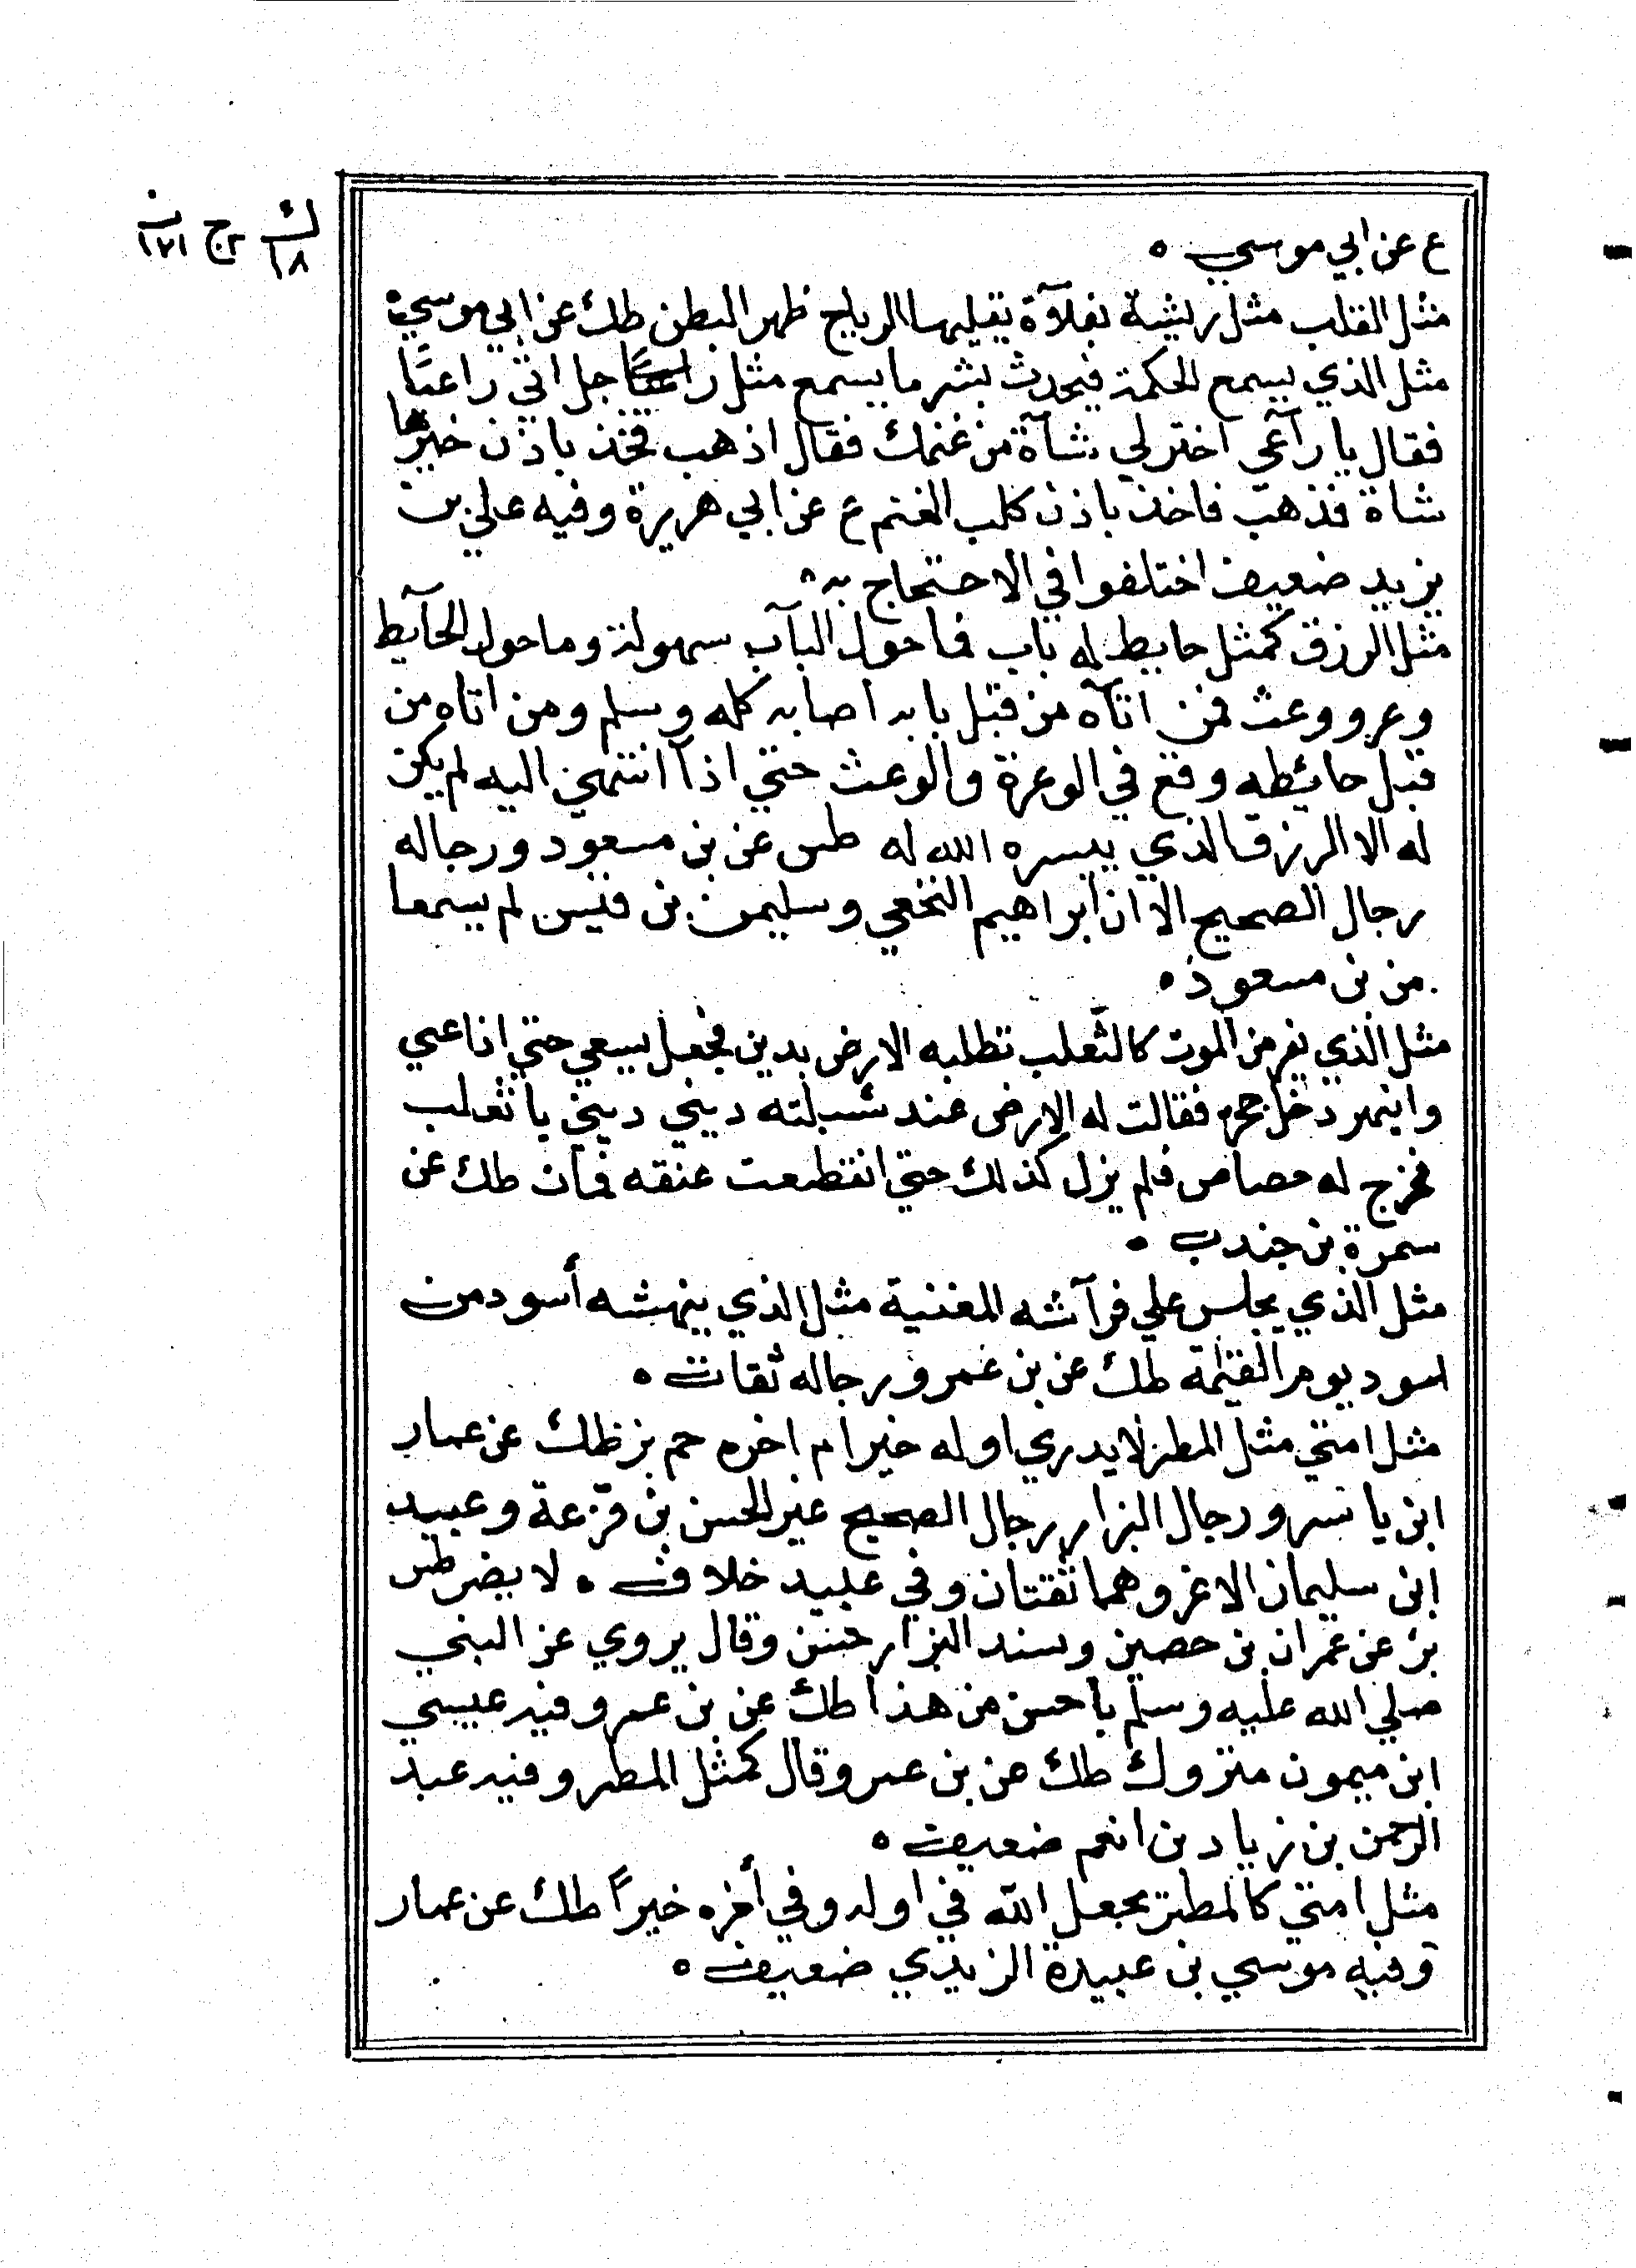 ع عن ابي موسي ه
مثل القلب مثل ريشة بفلآة يقلبها الرياح ظهر البطن طك عن ابي موسي ه
مثل الذي يسمع الحكمة فيحدث بشر ما يسمع مثل رجل اتي راعيًا
فقال يا رآعي اختر لي شآة من غنمك فقال اذهب فخذ باذن خيرها
شاة فذهب فاخذ باذن كلب الغنم ع عن ابي هريرة وفيه علي بن
يزيد ضعيف اختلفوا في الاحتجاج به ه
مثل الرزق كمثل حايط له باب فما حول البآب سهولة وما حول الحآيط
وعر ووعث فمن اتآه من قبل بابه اصابه كله وسلم ومن اتاه من
قبل حائيطه وقع في الوعرة والوعث حتي اذآ انتهي اليه لم يكن
له الا الرزق الذي ييسره الله له طس عن بن مسعود ورجاله
رجال الصحيح الا ان ابراهيم النخعي وسليمن بن قيس لم يسمعا
من بن مسعود ه
مثل الذي يفر من الموت كالثعلب تطلبه الارض بدين فجعل يسعي حتي اذا عي
وانبهر دخل جحره فقالت له الارض عند سبلته ديني ديني يا ثعلب
فخرج له حصاص فلم يزل كذلك حتي انقطعت عنقه فمات طك عن
سمرة بن جندب ه
مثل الذي يجلس علي فرآشه المغنية مثل الذي ينهشه أسود من
اسود يوم القيمة طك عن بن عمرو رجاله ثقات ه
مثل امتي مثل المطر لا يدري اوله خير ام اخره حم بز طك عن عمار
ابن ياسر ورجال البزار رجال الصحيح غير الحسن بن قزعة وعبيد
ابن سليمان الاغر وهما ثقتان وفي عبيد خلاف ه لا يضر طس
بز عن عمران بن حصين وسند البزار حسن وقال يروي عن النبي
صلي الله عليه وسلم باحسن من هذا طك عن بن عمر وفيه عيسي
ابن ميمون متروك طك عن بن عمرو قال كمثل المطر وفيه عبد
الرحمن بن زياد بن انعم ضعيف ه
مثل امتي كالمطر يجعل الله في اوله وفي أخره خيرًا طك عن عمار
وفيه موسي بن عبيدة الزيدي ضعيف ه